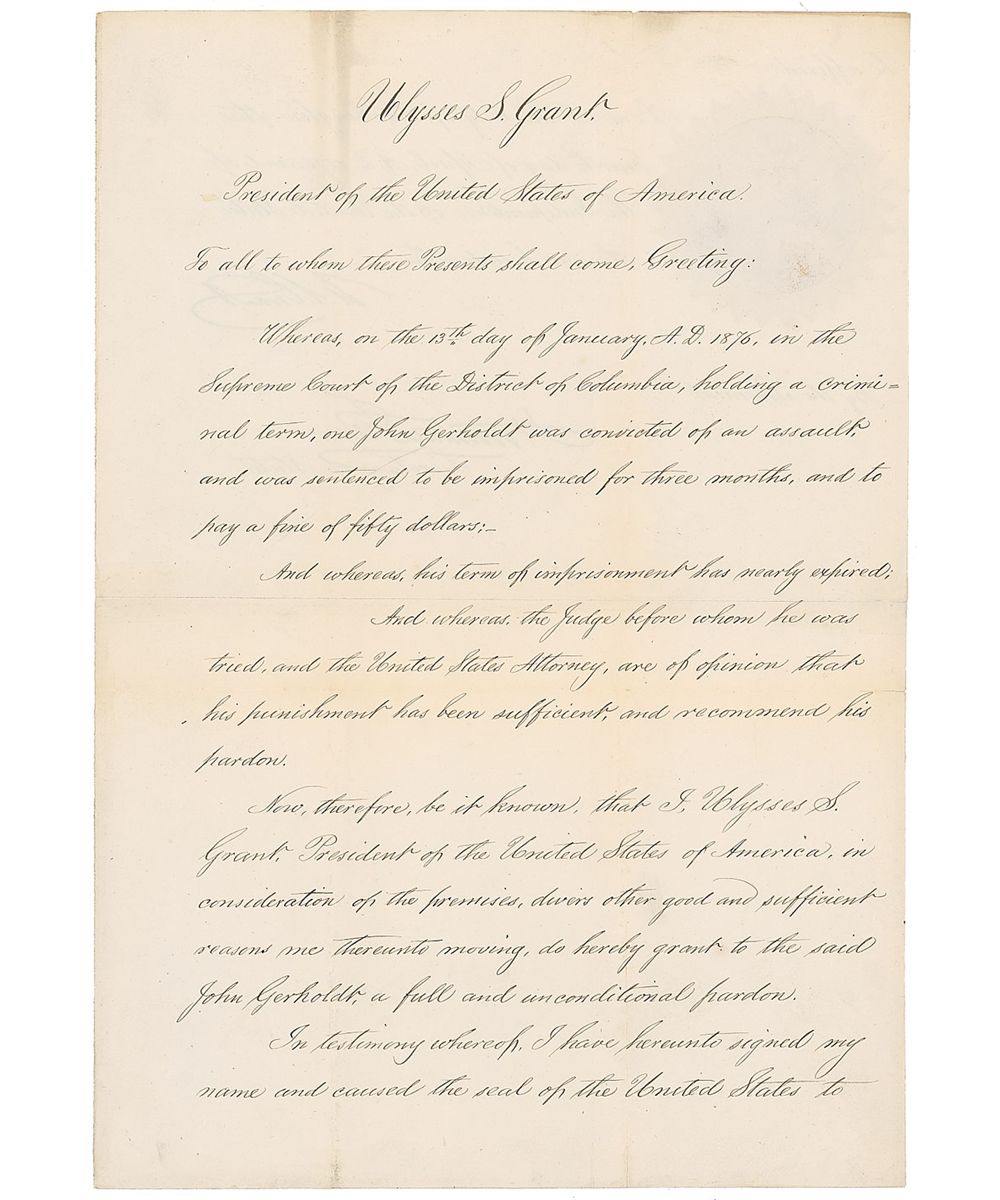 Ulysses S. Grant,
President of the United States of America.
To all to whom these Presents shall come, Greeting:
Whereas, on the 13th day of January, A. D. 1876, in the
Supreme Court of the District of Columbia, holding a crimi=
nal term, one John Gerholdt was convicted of an assault,
and was sentenced to be imprisoned for three months, and to
pay a fine of fifty dollars;–
And whereas, his term of imprisonment has nearly expired;
And whereas, the Judge before whom he was
tried, and the United States Attorney, are of opinion that
his punishment has been sufficient, and recommend his
pardon.
Now, therefore, be it known, that I, Ulysses S.
Grant, President of the United States of America, in
consideration of the premises, divers other good and sufficient
reasons me thereunto moving, do hereby grant to the said
John Gerholdt, a full and unconditional pardon.
In testimony whereof, I have hereunto signed my
name and caused the seal of the United States to